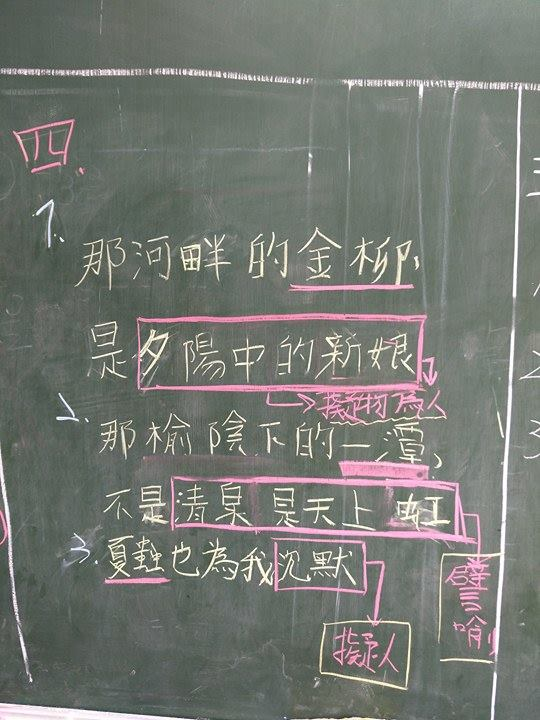 四.
1. 那河畔的金柳,
是夕陽中的新娘
擬物為人
2. 那榆陰下的一潭,
不是清泉 是天上虹
3. 夏蟲也為我沉默
譬喻
擬人